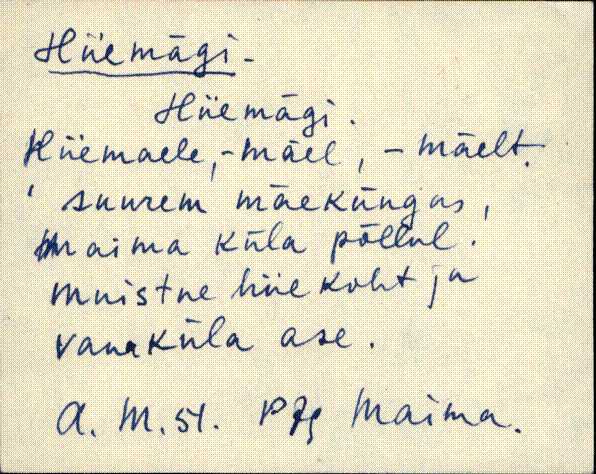 Hiiemägi.
Hiiemägi.
Hiiemaele, -mäel, -mäelt.
suurem mäeküngas,
Maima küla põllul.
muistne hiiekoht ja
vanaküla ase.
A. M. 51. PJg Maima.